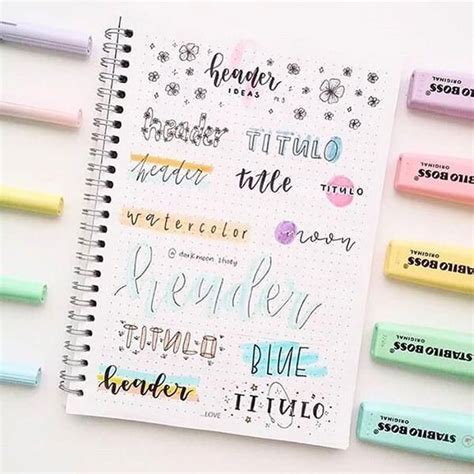 header
IDEAS
header TITULO
header title TITULO
watercolor moon
header
TITULO BLUE
header TITULO
...LOVE
STABILO BOSS
ORIGINAL
STABILO BOSS
ORIGINAL
STABILO BOSS
ORIGINAL
STABILO BOSS
ORIGINAL
STABILO BOSS
ORIGINAL